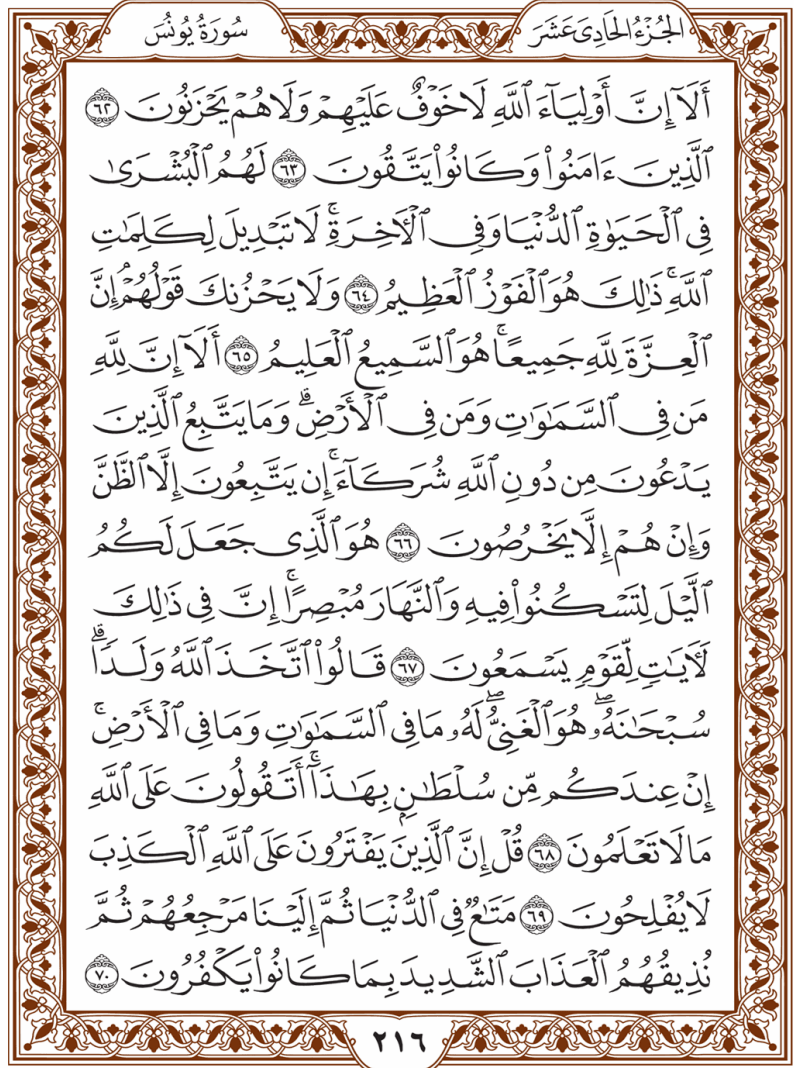 الجُزْءُ الحَادِي عَشَرَ
سُورَةُ يُونُسَ
أَلَآ إِنَّ أَوْلِيَآءَ ٱللَّهِ لَا خَوْفٌ عَلَيْهِمْ وَلَا هُمْ يَحْزَنُونَ ٦٢
ٱلَّذِينَ ءَامَنُواْ وَكَانُواْ يَتَّقُونَ ٦٣ لَهُمُ ٱلْبُشْرَىٰ
فِي ٱلْحَيَوٰةِ ٱلدُّنْيَا وَفِي ٱلْأٓخِرَةِۚ لَا تَبْدِيلَ لِكَلِمَٰتِ
ٱللَّهِۚ ذَٰلِكَ هُوَ ٱلْفَوْزُ ٱلْعَظِيمُ ٦٤ وَلَا يَحْزُنكَ قَوْلُهُمْۘ إِنَّ
ٱلْعِزَّةَ لِلَّهِ جَمِيعًاۚ هُوَ ٱلسَّمِيعُ ٱلْعَلِيمُ ٦٥ أَلَآ إِنَّ لِلَّهِ
مَن فِي ٱلسَّمَٰوَٰتِ وَمَن فِي ٱلْأَرْضِۗ وَمَا يَتَّبِعُ ٱلَّذِينَ
يَدْعُونَ مِن دُونِ ٱللَّهِ شُرَكَآءَۚ إِن يَتَّبِعُونَ إِلَّا ٱلظَّنَّ
وَإِنْ هُمْ إِلَّا يَخْرُصُونَ ٦٦ هُوَ ٱلَّذِي جَعَلَ لَكُمُ
ٱلَّيْلَ لِتَسْكُنُواْ فِيهِ وَٱلنَّهَارَ مُبْصِرًاۚ إِنَّ فِي ذَٰلِكَ
لَأٓيَٰتٖ لِّقَوْمٖ يَسْمَعُونَ ٦٧ قَالُواْ ٱتَّخَذَ ٱللَّهُ وَلَدٗاۗ
سُبْحَٰنَهُۥۖ هُوَ ٱلْغَنِيُّۖ لَهُۥ مَا فِي ٱلسَّمَٰوَٰتِ وَمَا فِي ٱلْأَرْضِۚ
إِنْ عِندَكُم مِّن سُلْطَٰنِۭ بِهَٰذَآۚ أَتَقُولُونَ عَلَى ٱللَّهِ
مَا لَا تَعْلَمُونَ ٦٨ قُلْ إِنَّ ٱلَّذِينَ يَفْتَرُونَ عَلَى ٱللَّهِ ٱلْكَذِبَ
لَا يُفْلِحُونَ ٦٩ مَتَٰعٞ فِي ٱلدُّنْيَا ثُمَّ إِلَيْنَا مَرْجِعُهُمْ ثُمَّ
نُذِيقُهُمُ ٱلْعَذَابَ ٱلشَّدِيدَ بِمَا كَانُواْ يَكْفُرُونَ ٧٠
٢١٦